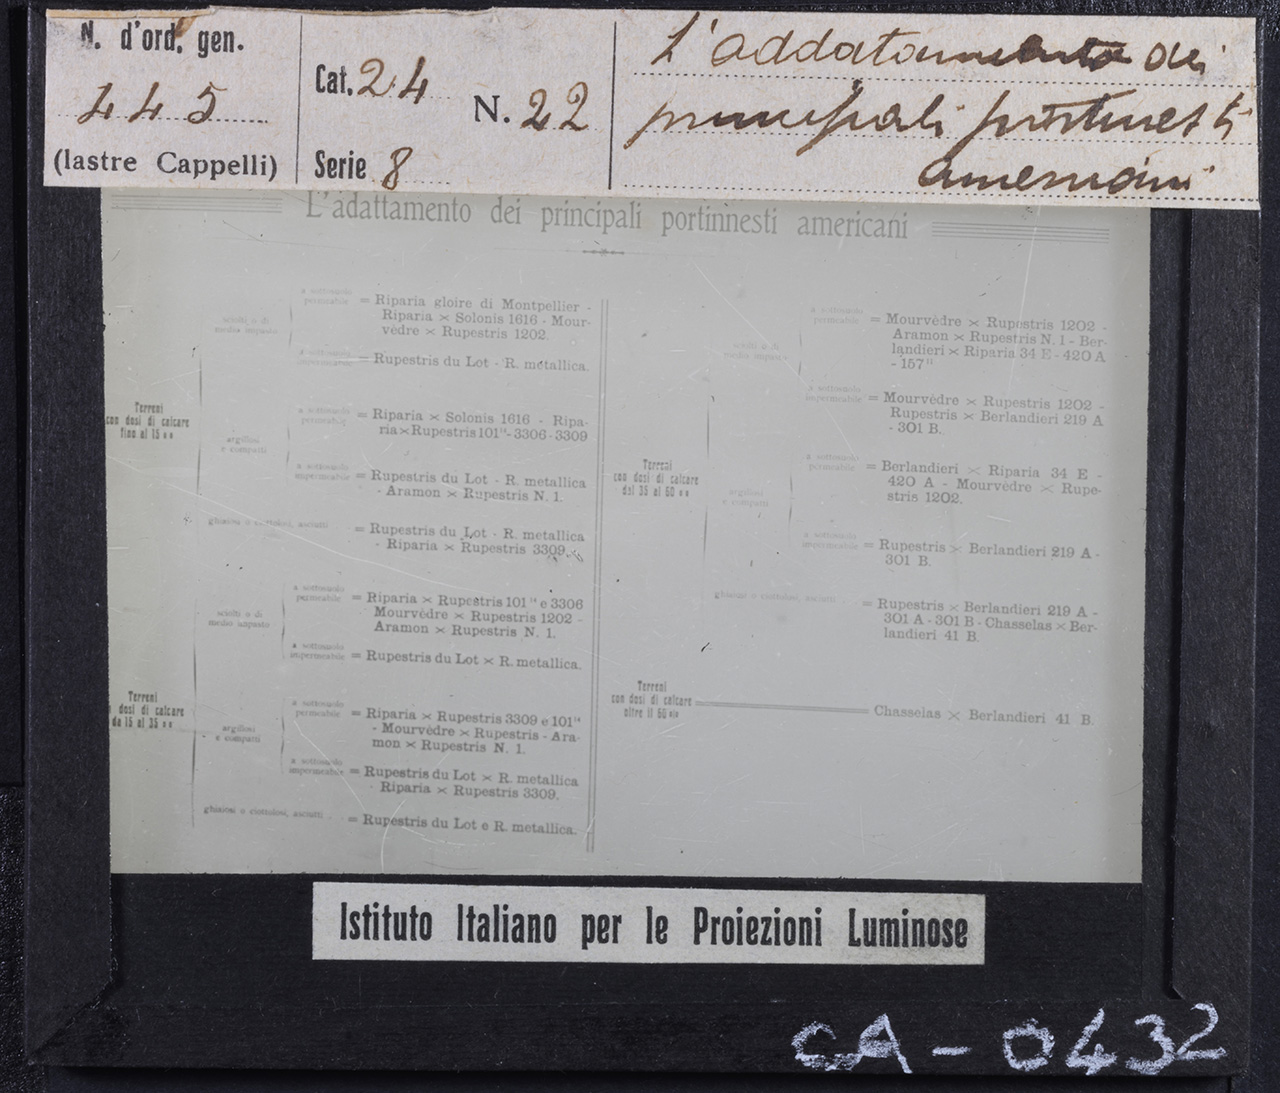 N. d'ord. gen.
445
(lastre Cappelli)
Cat. 24
N. 22
Serie 8
L'addatamento dei
principali portinesti
americani
L'adattamento dei principali portinnesti americani
Terreni
con dosi di calcare
fino al 15 %
sciolti o di
medio impasto
a sottosuolo
permeabile
= Riparia gloire di Montpellier -
Riparia × Solonis 1616 - Mour-
vèdre × Rupestris 1202.
a sottosuolo
impermeabile
= Rupestris du Lot - R. metallica.
argillosi
e compatti
a sottosuolo
permeabile
= Riparia × Solonis 1616 - Ripa-
ria × Rupestris 101¹⁴ - 3306 - 3309
a sottosuolo
impermeabile
= Rupestris du Lot - R. metallica
- Aramon × Rupestris N. 1.
ghiaiosi o ciottolosi, asciutti
= Rupestris du Lot - R. metallica
- Riparia × Rupestris 3309.
Terreni
con dosi di calcare
da 15 al 35 %
sciolti o di
medio impasto
a sottosuolo
permeabile
= Riparia × Rupestris 101¹⁴ e 3306
Mourvèdre × Rupestris 1202 -
Aramon × Rupestris N. 1.
a sottosuolo
impermeabile
= Rupestris du Lot × R. metallica.
argillosi
e compatti
a sottosuolo
permeabile
= Riparia × Rupestris 3309 e 101¹⁴
- Mourvèdre × Rupestris - Ara-
mon × Rupestris N. 1.
a sottosuolo
impermeabile
= Rupestris du Lot × R. metallica
Riparia × Rupestris 3309.
ghiaiosi o ciottolosi, asciutti
= Rupestris du Lot e R. metallica.
Terreni
con dosi di calcare
dal 35 al 60 %
sciolti o di
medio impasto
a sottosuolo
permeabile
= Mourvèdre × Rupestris 1202 -
Aramon × Rupestris N. 1 - Ber-
landieri × Riparia 34 E - 420 A
- 157¹¹
a sottosuolo
impermeabile
= Mourvèdre × Rupestris 1202 -
Rupestris × Berlandieri 219 A
- 301 B.
argillosi
e compatti
a sottosuolo
permeabile
= Berlandieri × Riparia 34 E -
420 A - Mourvèdre × Rupe-
stris 1202.
a sottosuolo
impermeabile
= Rupestris × Berlandieri 219 A -
301 B.
ghiaiosi o ciottolosi, asciutti
= Rupestris × Berlandieri 219 A -
301 A - 301 B - Chasselas × Ber-
landieri 41 B.
Terreni
con dosi di calcare
oltre il 60 %
Chasselas × Berlandieri 41 B.
Istituto Italiano per le Proiezioni Luminose
CA - 0432